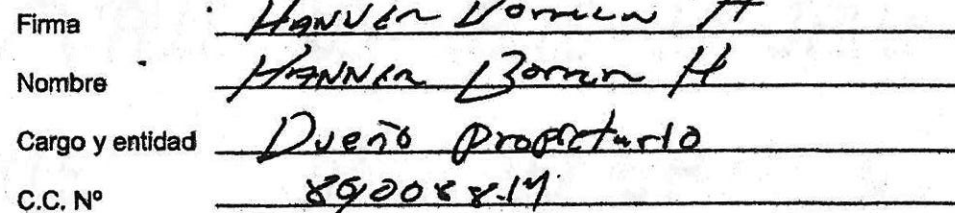 Firma HANNER Borrero H
Nombre HANNER Borrero H
Cargo y entidad Dueño Propietario
C.C. Nº